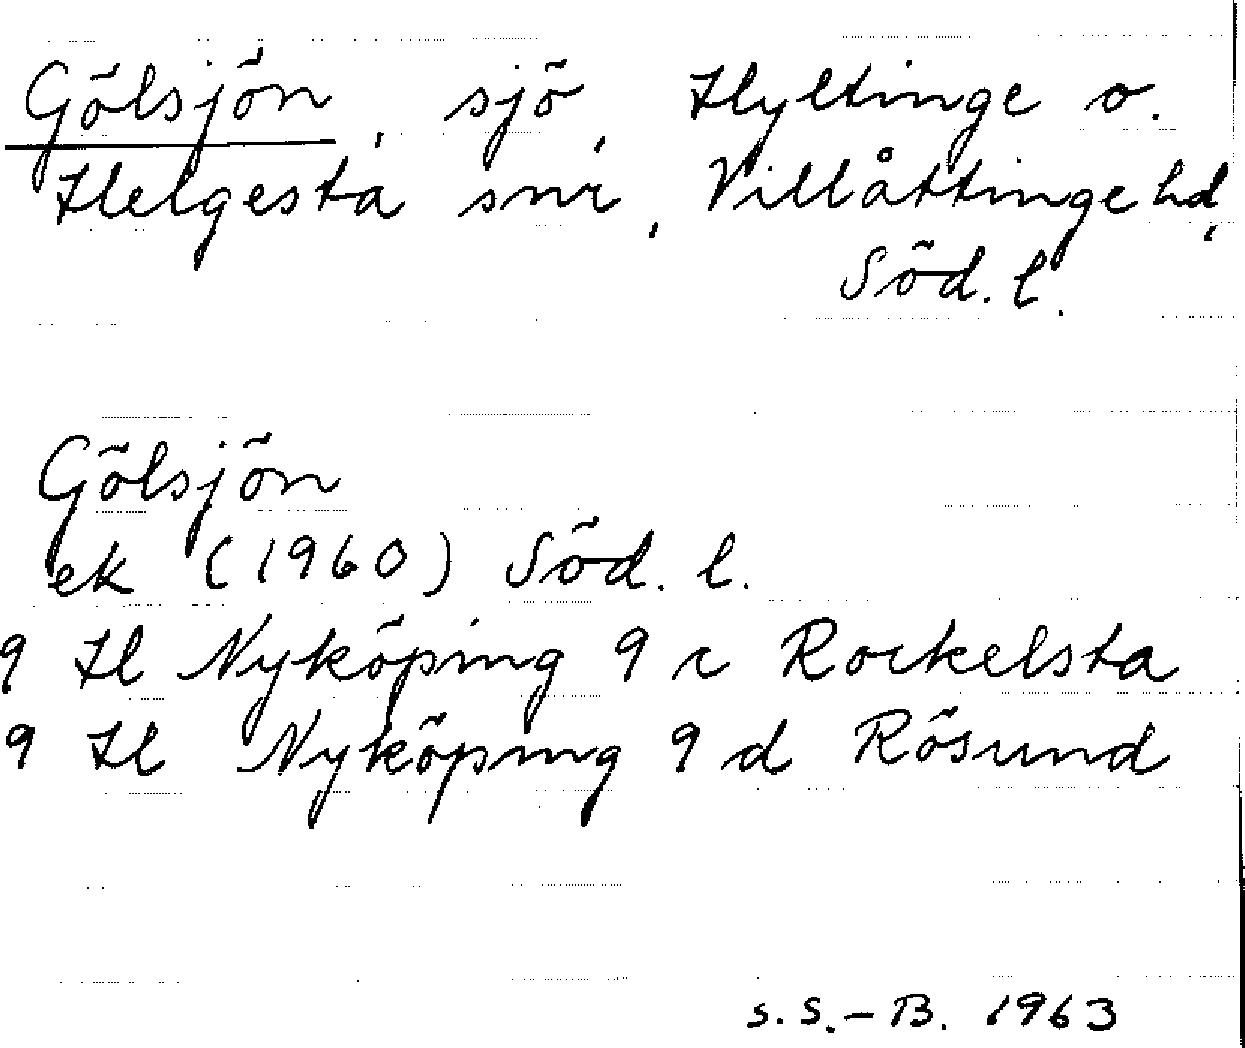 Gölsjön, sjö, Hyltinge o.
Helgesta snr, Villåttinge hd,
Söd. l.
Gölsjön
ek (1960) Söd. l.
9 H Nyköping 9 c Rockelsta
9 H Nyköping 9 d Rösund
S.S.-B. 1963